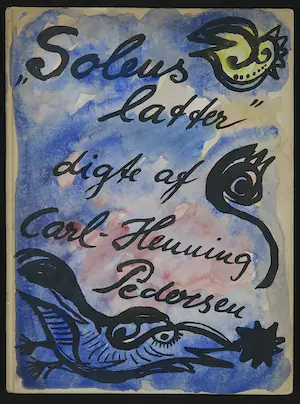 „Solens
latter"
digte af
Carl-Henning
Pedersen